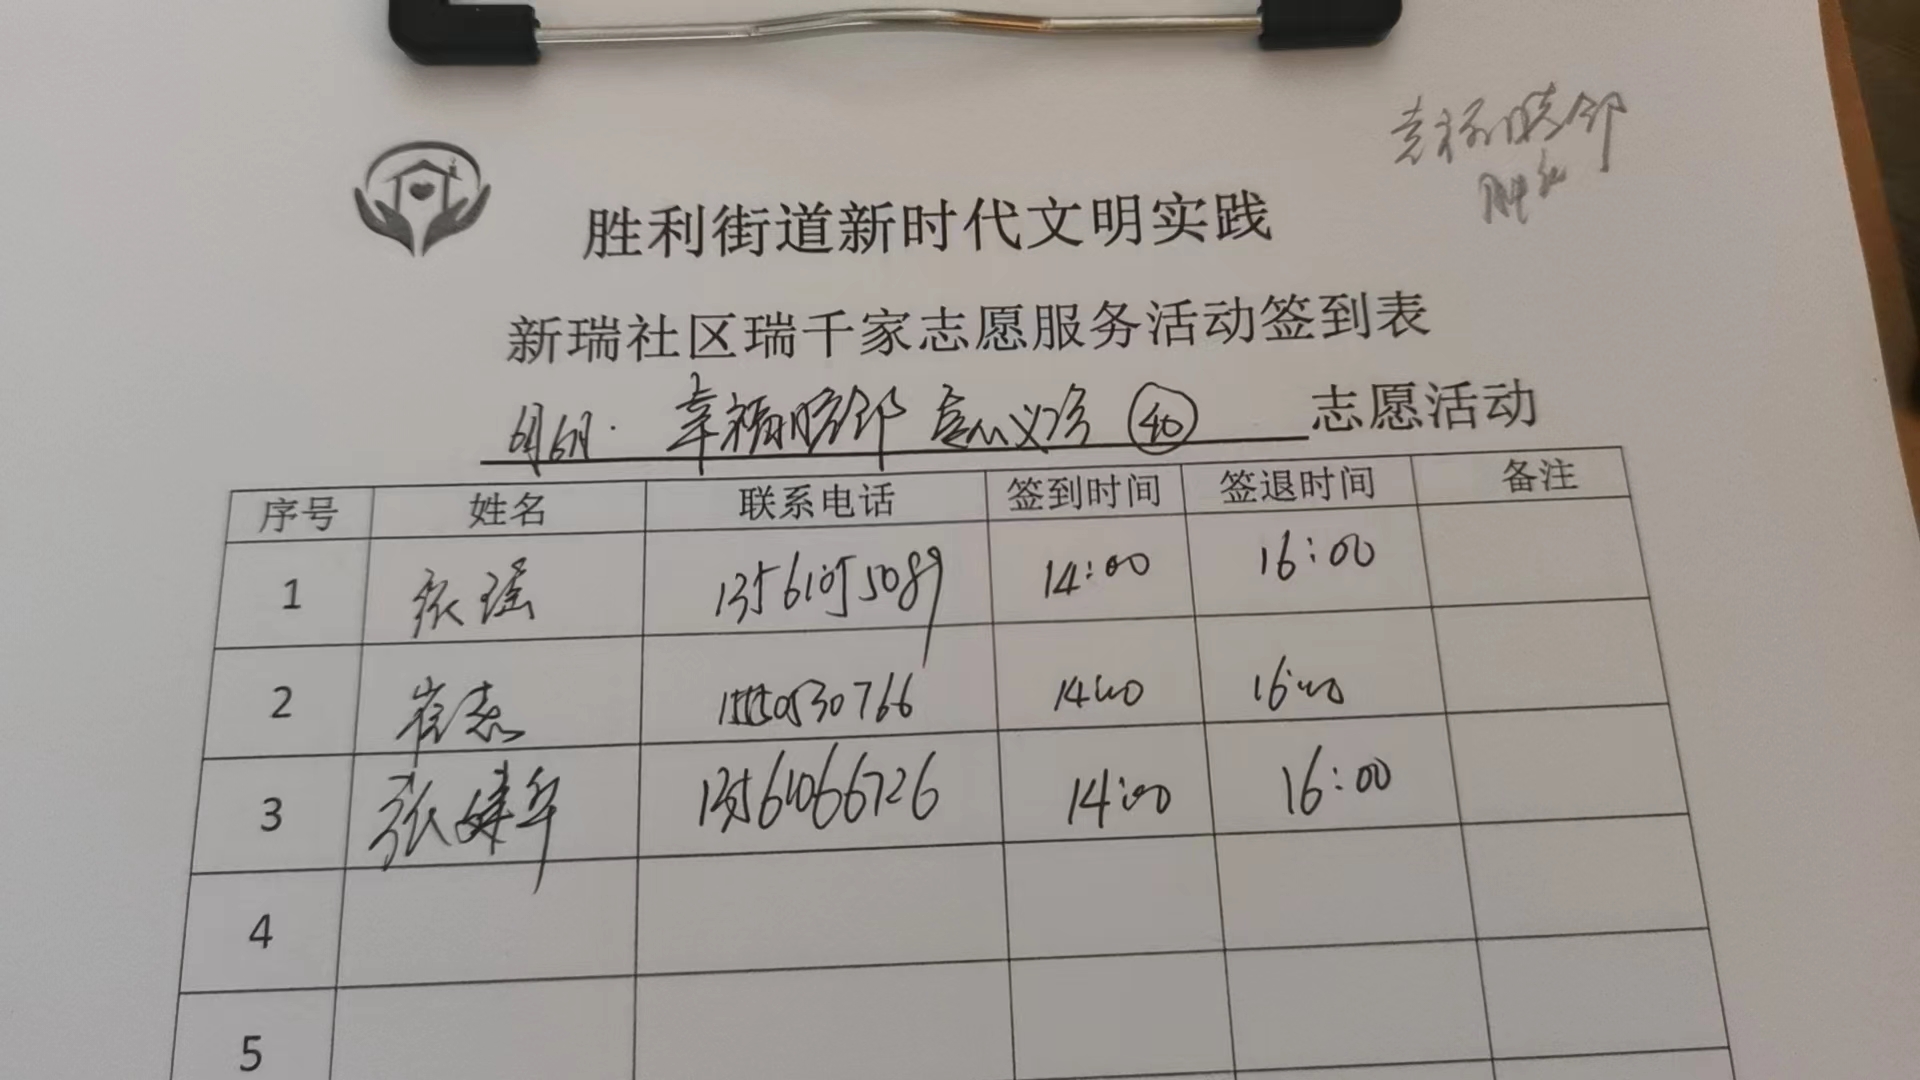 幸福睦邻
胜利街道新时代文明实践
新瑞社区瑞千家志愿服务活动签到表
6月6日. 幸福睦邻 义诊 40 志愿活动
序号 姓名 联系电话 签到时间 签退时间 备注
1 张瑶 13561055089 14:00 16:00
2 崔志 0530766 14:00 16:00
3 张建华 13561066726 14:00 16:00
4
5